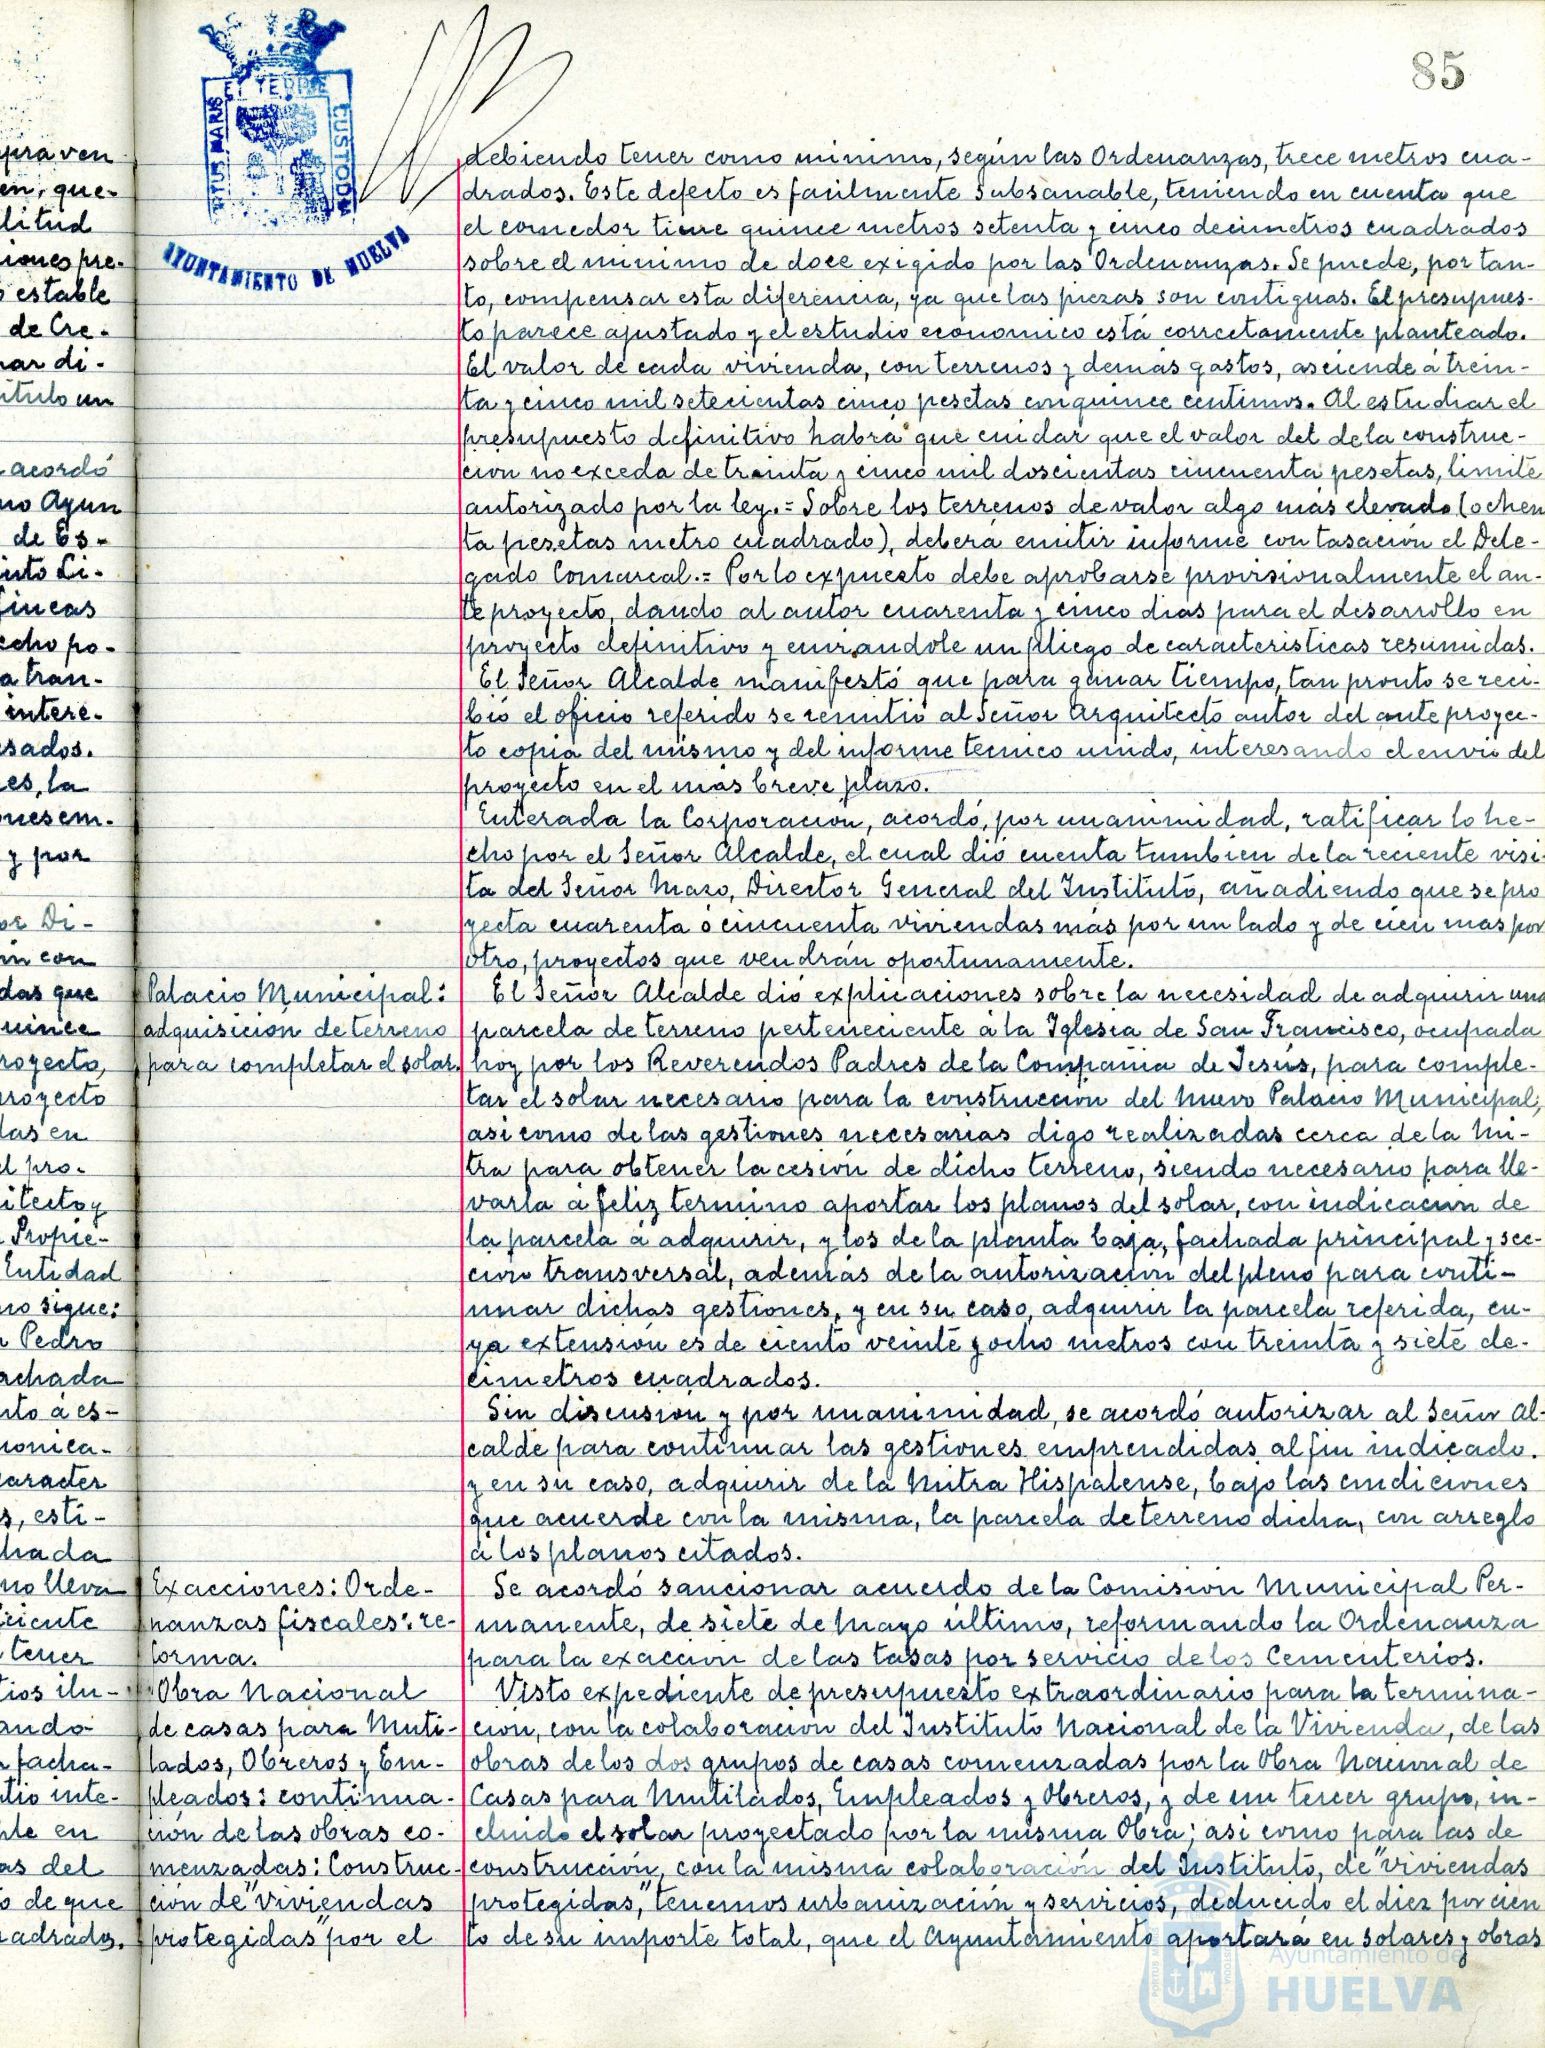 85
PORTUS MARIS
ET TERRE
CUSTODIA
AYUNTAMIENTO DE HUELVA
debiendo tener como minimo, según las Ordenanzas, trece metros cua-
drados. Este defecto es facilmente subsanable, teniendo en cuenta que
el comedor tiene quince metros setenta y cinco decimetros cuadrados
sobre el minimo de doce exigido por las Ordenanzas. Se puede, por tan-
to, compensar esta diferencia, ya que las piezas son contiguas. El presupues-
to parece ajustado y el estudio economico está correctamente planteado.
El valor de cada vivienda, con terrenos y demás gastos, asciende á trein-
ta y cinco mil setecientas cinco pesetas con quince centimos. Al estudiar el
presupuesto definitivo habrá que cuidar que el valor del de la construc-
ción no exceda de treinta y cinco mil doscientas cincuenta pesetas, limite
autorizado por la ley.= Sobre los terrenos de valor algo más elevado (ochen
ta pesetas metro cuadrado), deberá emitir informe con tasación el Dele-
gado Comarcal.= Por lo expuesto debe aprobarse provisionalmente el an-
te proyecto, dando al autor cuarenta y cinco dias para el desarrollo en
proyecto definitivo y enviandole un pliego de caracteristicas resumidas.
El Señor Alcalde manifestó que para ganar tiempo, tan pronto se reci-
bió el oficio referido se remitió al Señor Arquitecto autor del ante proyec-
to copia del mismo y del informe tecnico unido, interesando el envio del
proyecto en el más breve plazo.
Enterada la Corporación, acordó, por unanimidad, ratificar lo he-
cho por el Señor Alcalde, el cual dió cuenta tambien de la reciente visi-
ta del Señor Mazo, Director General del Instituto, añadiendo que se pro
yecta cuarenta ó cincuenta viviendas más por un lado y de cien mas por
otro, proyectos que vendrán oportunamente.
Palacio Municipal:
adquisición de terreno
para completar el solar.
El Señor Alcalde dió explicaciones sobre la necesidad de adquirir una
parcela de terreno perteneciente á la Iglesia de San Francisco, ocupada
hoy por los Reverendos Padres de la Compañia de Jesús, para comple-
tar el solar necesario para la construcción del nuevo Palacio Municipal;
asi como de las gestiones necesarias digo realizadas cerca de la Mi-
tra para obtener la cesión de dicho terreno, siendo necesario para lle-
varla á feliz termino aportar los planos del solar, con indicación de
la parcela á adquirir, y los de la planta baja, fachada principal y sec-
ción transversal, además de la autorización del pleno para conti-
nuar dichas gestiones, y en su caso, adquirir la parcela referida, cu-
ya extensión es de ciento veinte y ocho metros con treinta y siete de-
cimetros cuadrados.
Sin discusión y por unanimidad, se acordó autorizar al Señor Al-
calde para continuar las gestiones emprendidas al fin indicado.
y en su caso, adquirir de la Mitra Hispalense, bajo las condiciones
que acuerde con la misma, la parcela de terreno dicha, con arreglo
á los planos citados.
Exacciones: Orde-
nanzas fiscales: re-
forma.
Se acordó sancionar acuerdo de la Comisión Municipal Per-
manente, de siete de Mayo último, reformando la Ordenanza
para la exacción de las tasas por servicio de los Cementerios.
Obra Nacional
de casas para Muti-
lados, Obreros y Em-
pleados: continua-
ción de las obras co-
menzadas: Construc-
ción de "viviendas
protegidas" por el
Visto expediente de presupuesto extraordinario para la termina-
ción, con la colaboración del Instituto Nacional de la Vivienda, de las
obras de los dos grupos de casas comenzadas por la Obra Nacional de
Casas para Mutilados, Empleados y Obreros, y de un tercer grupo, in-
cluido el solar proyectado por la misma Obra; asi como para las de
construcción, con la misma colaboración del Instituto, de "viviendas
protegidas," tenemos urbanización y servicios, deducido el diez por cien
to de su importe total, que el Ayuntamiento aportará en solares y obras
Ayuntamiento de
HUELVA